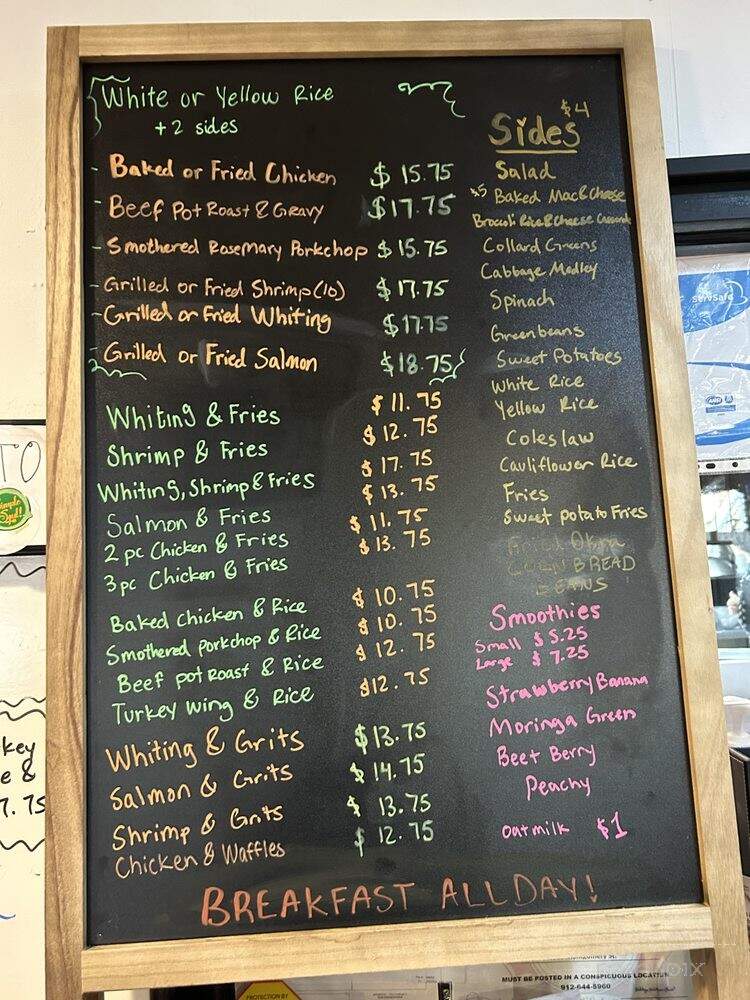 White or Yellow Rice
+ 2 sides
- Baked or Fried Chicken $ 15.75
- Beef Pot Roast & Gravy $17.75
- Smothered Rosemary Porkchop $ 15.75
- Grilled or Fried Shrimp (10) $ 17.75
- Grilled or Fried Whiting $17.75
- Grilled or Fried Salmon $18.75
Whiting & Fries $ 11.75
Shrimp & Fries $ 12.75
Whiting, Shrimp & Fries $ 17.75
Salmon & Fries $ 13.75
2 pc Chicken & Fries $ 11.75
3 pc Chicken & Fries $ 13.75
Baked chicken & Rice $ 10.75
Smothered porkchop & Rice $ 10.75
Beef pot Roast & Rice $ 12.75
Turkey Wing & Rice $12.75
Whiting & Grits $13.75
Salmon & Grits $ 14.75
Shrimp & Grits $ 13.75
Chicken & Waffles $ 12.75
$4
Sides
Salad
$5 Baked Mac & Cheese
Broccoli Rice & Cheese
Collard Greens
Cabbage Medley
Spinach
Greenbeans
Sweet Potatoes
White Rice
Yellow Rice
Coleslaw
Cauliflower Rice
Fries
Sweet potato Fries
Fried Okra
CORN BREAD
BEANS
Smoothies
Small $ 5.25
Large $ 7.25
Strawberry Banana
Moringa Green
Beet Berry
Peachy
oatmilk $1
BREAKFAST ALL DAY!
TO
key
e &
7.75
ServSafe
PROTECTION BY
MUST BE POSTED IN A CONSPICUOUS LOCATION
912-644-5960